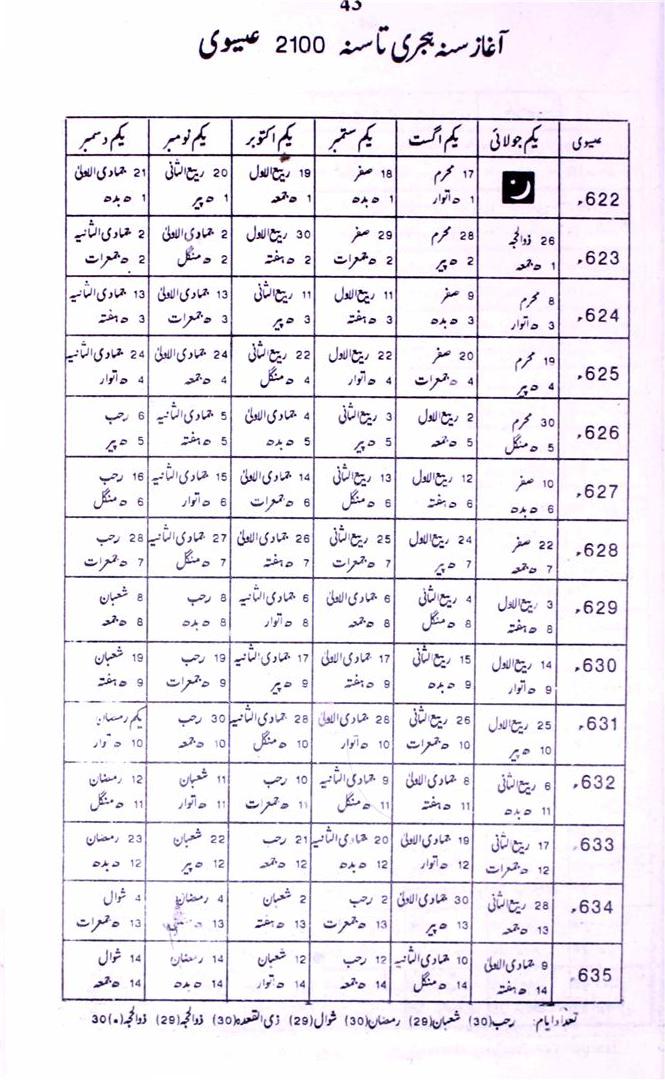 43
آغاز سنہ ہجری تا سنہ 2100 عیسوی
عیسوی | یکم جولائی | یکم اگست | یکم ستمبر | یکم اکتوبر | یکم نومبر | یکم دسمبر
622ء | ن | 17 محرم | 18 صفر | 19 ربیع الاول | 20 ربیع الثانی | 21 جمادی الاولیٰ
1 ھ اتوار | 1 ھ بدھ | 1 ھ جمعہ | 1 ھ پیر | 1 ھ بدھ
623ء | 26 ذوالحجہ | 28 محرم | 29 صفر | 30 ربیع الاول | 2 جمادی الاولیٰ | 2 جمادی الثانیہ
1 ھ جمعہ | 2 ھ پیر | 2 ھ جمعرات | 2 ھ ہفتہ | 2 ھ منگل | 2 ھ جمعرات
624ء | 8 محرم | 9 صفر | 11 ربیع الاول | 11 ربیع الثانی | 13 جمادی الاولیٰ | 13 جمادی الثانیہ
3 ھ اتوار | 3 ھ بدھ | 3 ھ ہفتہ | 3 ھ پیر | 3 ھ جمعرات | 3 ھ ہفتہ
625ء | 19 محرم | 20 صفر | 22 ربیع الاول | 22 ربیع الثانی | 24 جمادی الاولیٰ | 24 جمادی الثانیہ
4 ھ پیر | 4 ھ جمعرات | 4 ھ اتوار | 4 ھ منگل | 4 ھ جمعہ | 4 ھ اتوار
626ء | 30 محرم | 2 ربیع الاول | 3 ربیع الثانی | 4 جمادی الاولیٰ | 5 جمادی الثانیہ | 6 رجب
5 ھ منگل | 5 ھ جمعہ | 5 ھ پیر | 5 ھ بدھ | 5 ھ ہفتہ | 5 ھ پیر
627ء | 10 صفر | 12 ربیع الاول | 13 ربیع الثانی | 14 جمادی الاولیٰ | 15 جمادی الثانیہ | 16 رجب
6 ھ بدھ | 6 ھ ہفتہ | 6 ھ منگل | 6 ھ جمعرات | 6 ھ اتوار | 6 ھ منگل
628ء | 22 صفر | 24 ربیع الاول | 25 ربیع الثانی | 26 جمادی الاولیٰ | 27 جمادی الثانیہ | 28 رجب
7 ھ جمعہ | 7 ھ پیر | 7 ھ جمعرات | 7 ھ ہفتہ | 7 ھ منگل | 7 ھ جمعرات
629ء | 3 ربیع الاول | 4 ربیع الثانی | 6 جمادی الاولیٰ | 6 جمادی الثانیہ | 8 رجب | 8 شعبان
8 ھ ہفتہ | 8 ھ منگل | 8 ھ جمعہ | 8 ھ اتوار | 8 ھ بدھ | 8 ھ جمعہ
630ء | 14 ربیع الاول | 15 ربیع الثانی | 17 جمادی الاولیٰ | 17 جمادی الثانیہ | 19 رجب | 19 شعبان
9 ھ اتوار | 9 ھ بدھ | 9 ھ ہفتہ | 9 ھ پیر | 9 ھ جمعرات | 9 ھ ہفتہ
631ء | 25 ربیع الاول | 26 ربیع الثانی | 28 جمادی الاولیٰ | 28 جمادی الثانیہ | 30 رجب | یکم رمضان
10 ھ پیر | 10 ھ جمعرات | 10 ھ اتوار | 10 ھ منگل | 10 ھ جمعہ | 10 ھ اتوار
632ء | 6 ربیع الثانی | 8 جمادی الاولیٰ | 9 جمادی الثانیہ | 10 رجب | 11 شعبان | 12 رمضان
11 ھ بدھ | 11 ھ ہفتہ | 11 ھ منگل | 11 ھ جمعرات | 11 ھ اتوار | 11 ھ منگل
633ء | 17 ربیع الثانی | 19 جمادی الاولیٰ | 20 جمادی الثانیہ | 21 رجب | 22 شعبان | 23 رمضان
12 ھ جمعرات | 12 ھ اتوار | 12 ھ بدھ | 12 ھ جمعہ | 12 ھ پیر | 12 ھ بدھ
634ء | 28 ربیع الثانی | 30 جمادی الاولیٰ | 2 رجب | 2 شعبان | 4 رمضان | 4 شوال
13 ھ جمعہ | 13 ھ پیر | 13 ھ جمعرات | 13 ھ ہفتہ | 13 ھ | 13 ھ جمعرات
635ء | 9 جمادی الاولیٰ | 10 جمادی الثانیہ | 12 رجب | 12 شعبان | 14 رمضان | 14 شوال
14 ھ ہفتہ | 14 ھ منگل | 14 ھ جمعہ | 14 ھ اتوار | 14 ھ بدھ | 14 ھ جمعہ
تعداد ایام: رجب(30) شعبان(29) رمضان(30) شوال(29) ذی القعدہ(30) ذوالحجہ(29) ذوالحجہ(٭)30